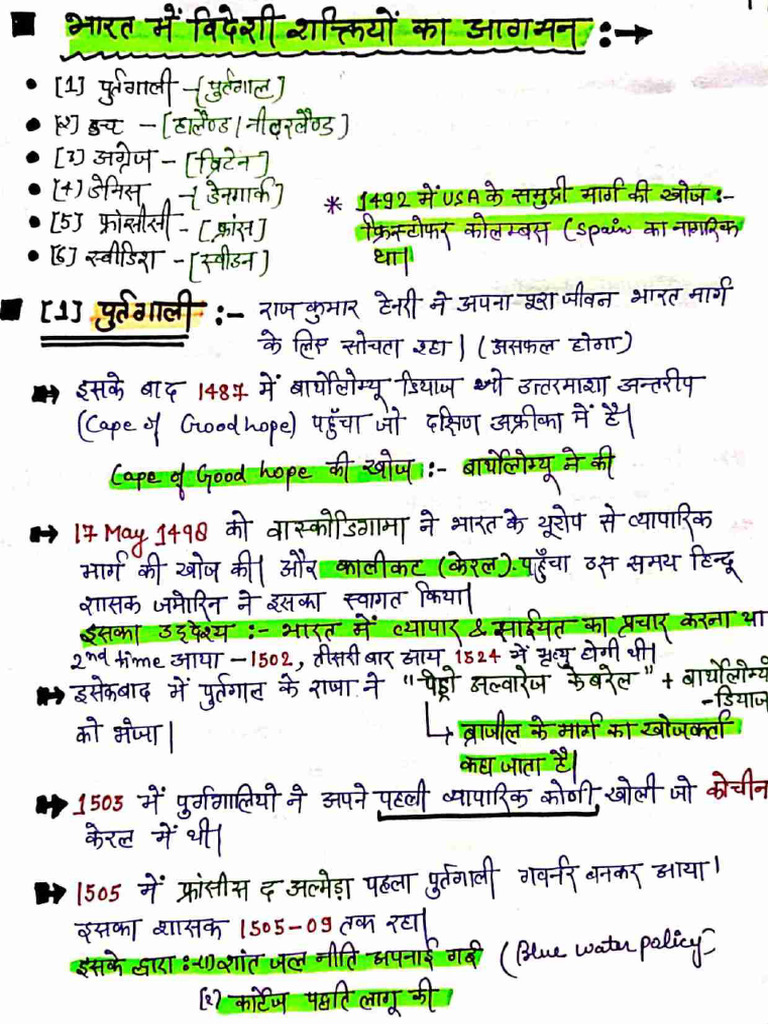 भारत में विदेशी शक्तियों का आगमन :→
[1] पुर्तगाली -[पुर्तगाल]
[2] डच - [हालैण्ड / नीदरलैण्ड]
[3] अग्रेज - [ब्रिटेन]
[4] डेनिस -[डेनमार्क]
[5] फ्रांसीसी - [फ्रांस]
[6] स्वीडिश - [स्वीडन]
* 1492 में USA के समुद्री मार्ग की खोज :-
क्रिस्टोफर कोलम्बस (Spain का नागरिक
था|
[1] पुर्तगाली :- राज कुमार हेनरी ने अपना पूरा जीवन भारत मार्ग
के लिए सोचता रहा | (असफल होगा)
इसके बाद 1487 में बार्थोलोम्यू डियाज उत्तमाशा अन्तरीप
(Cape of Good hope) पहुँचा जो दक्षिण अफ्रीका में है|
Cape of Good hope की खोज :- बार्थोलोम्यू ने की
17 May 1498 को वास्कोडिगामा ने भारत के यूरोप से व्यापारिक
मार्ग की खोज की| और कालीकट (केरल). पहुँचा उस समय हिन्दू
शासक जमोरिन ने इसका स्वागत किया|
इसका उद्देश्य :- भारत में व्यापार & साईयत का प्रचार करना था
2nd time आया - 1502, तीसरी बार आय 1524 में मृत्यु होगी थी|
इसेकबाद में पुर्तगाल के राजा ने "पेड्रो अल्वारेज केबरेल" + बार्थोलोम्यो
-डियाज
को भेजा |
↳ ब्राजील के मार्ग का खोजकर्ता
कहा जाता है|
1503 में पुर्तगालियो ने अपने पहली व्यापारिक कोठी खोली जो कोचीन
केरल में थी|
1505 में फ्रांसीस द अल्मेड़ा पहला पुर्तगाली गवर्नर बनकर आया।
इसका शासक 1505-09 तक रहा|
इसके द्वारा :-(1) शांत जल नीति अपनाई गई (Blue water policy-
[2] कार्टेज पद्दति लागू की